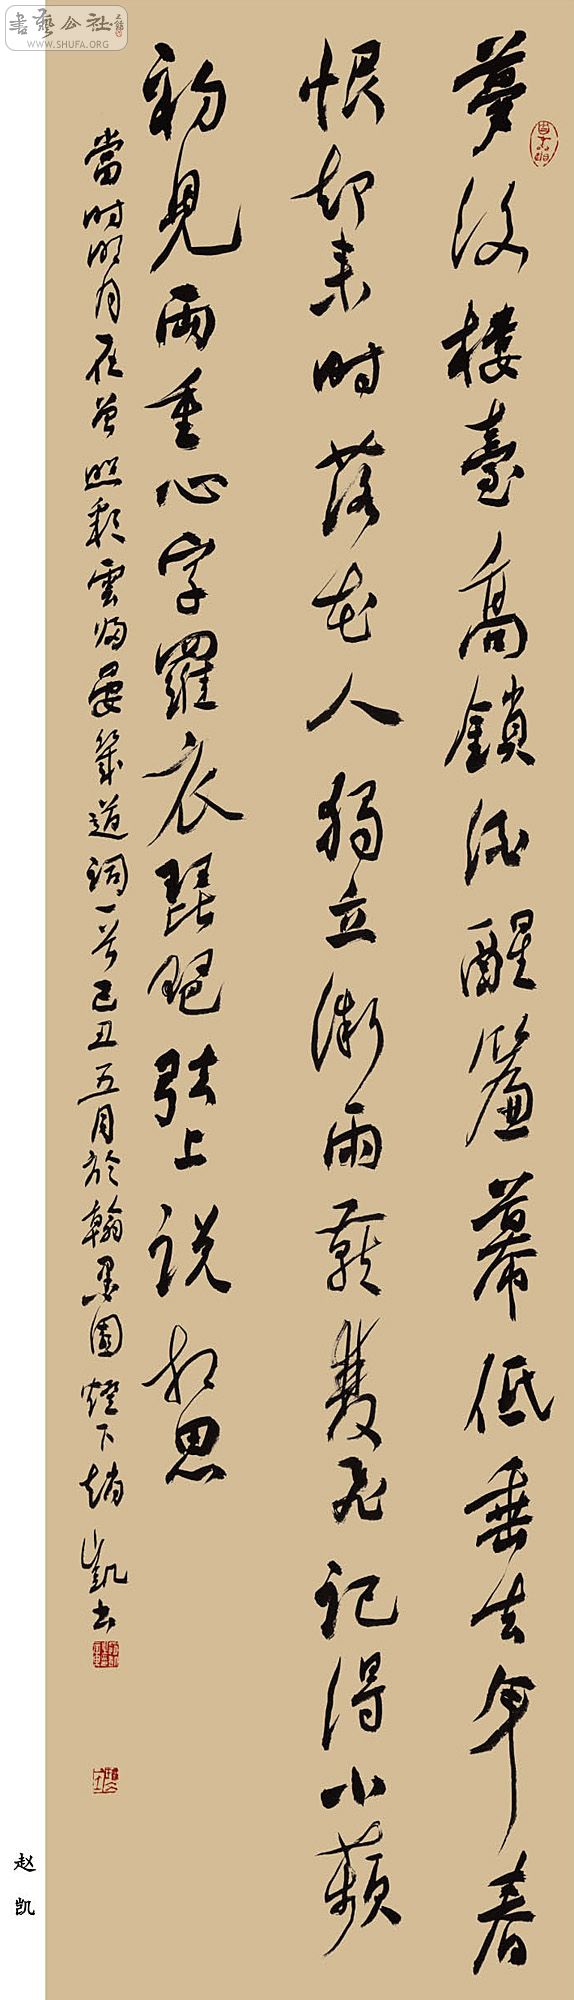 夢後樓臺高鎖酒醒簾幕低垂去年春
恨却来時落花人獨立微雨燕雙飛記得小蘋
初見兩重心字羅衣琵琶弦上説相思
當時明月在曾照彩雲歸晏幾道詞一首己丑五月於翰墨園燈下趙凱书
赵凯
書藝公社
WWW.SHUFA.ORG